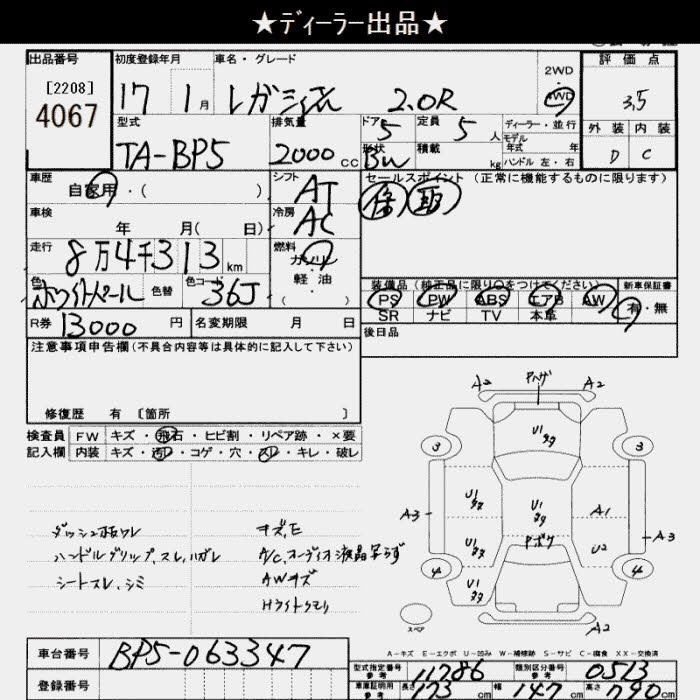 ★ディーラー出品★
出品番号 初度登録年月 車名・グレード 2WD 評価点
[2208]
4067 17 1月 レガシィ 2.0R 4WD 3.5
型式 排気量 ドア 定員 ディーラー・並行 外装 内装
TA-BP5 2000cc 5 5人 モデル 年式 年 D C
形状 積載 kg ハンドル 左・右
BW
車歴 シフト セールスポイント (正常に機能するものに限ります)
自家用・( ) AT
車検 冷房
年 月( 日) AC
走行 燃料
8万4千313km ガソリン
色 色替 色コード 軽油
ホワイトパール 36J ・( )
装備品(純正品に限り○をつけてください) 新車保証書
PS PW ABS エアB AW 有・無
SR ナビ TV 本革
R券 13000円 名変期限 月 日 後日品
注意事項申告欄(不具合内容等は具体的に記入して下さい)
修復歴 有 〔箇所 〕
検査員 FW キズ・飛石・ヒビ割・リペア跡・×要
記入欄 内装 キズ・汚レ・コゲ・穴・スレ・キレ・破レ
ダッシュ板ワレ キズ、E
ハンドルグリップ、スレ、ハガレ A/C、オーディオ液晶写らず
シートスレ、シミ AWキズ
Hライトクモリ
A2 Pヘゲ A2
U1
タタ
3 3
U1
タタ
U1
タタ
A1
A3 A3
U1
タタ
Pボケ
U2
4 4
U1
タタ
スペア
A2
A-キズ E-エクボ U-凹み W-補修跡 S-サビ C-腐食 XX-交換済
車台番号 BP5-063347
型式指定番号 参考 11786 類別区分番号 参考 0513
登録番号 車庫証明用 参考 長さ 173cm 幅 147cm 高さ 790cm